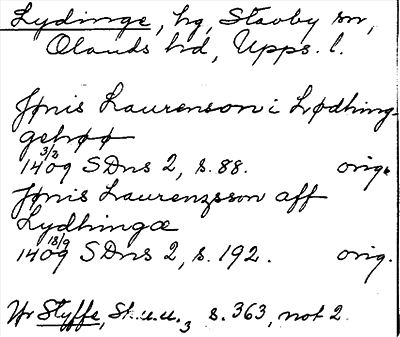 Lydinge, hg, Stavby sn,
Olands hd, Upps. l.
Jønis Laurenson i Lødhing-
gehøø
3/3
1409 SDns 2, s. 88. orig.
Jønis Laurenzsson aff
Lydhingæ
18/9
1409 SDns 2, s. 192. orig.
Styffe, Sk.u.u.3 s. 363, not 2.